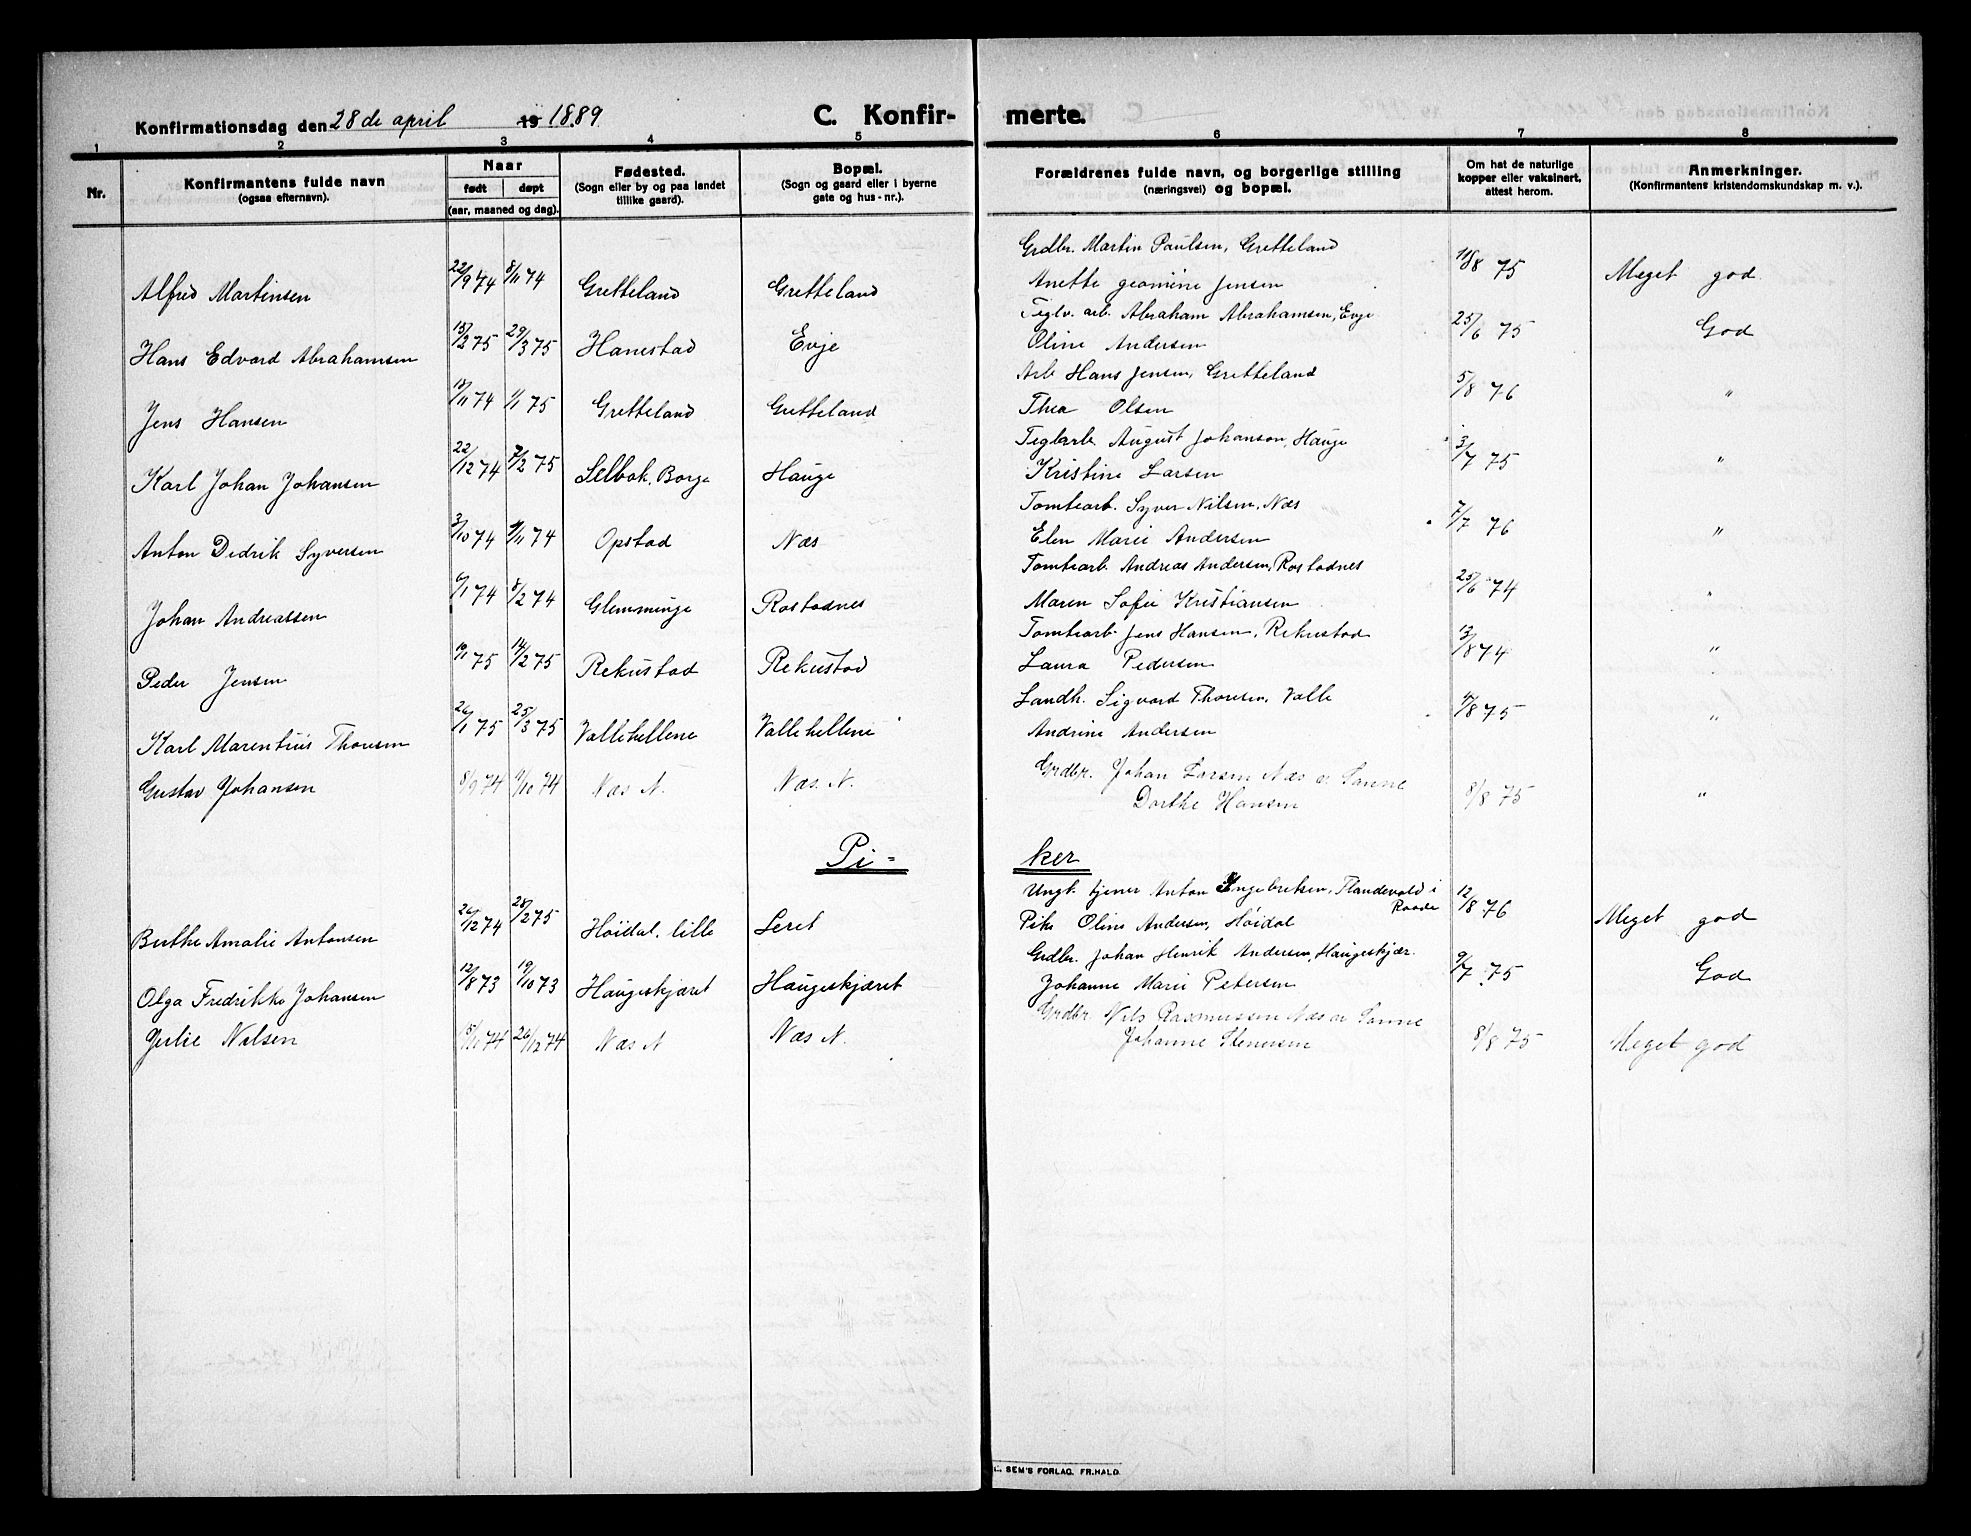 Konfirmationsdag den 28de april 19 1889 C. Konfir- merte.
1 2 3 4 5 6 7 8
Nr. Konfirmantens fulde navn (ogsaa efternavn). Naar født døpt (aar, maaned og dag). Fødested. (Sogn eller by og paa landet tillike gaard). Bopæl. (Sogn og gaard eller i byerne gate og hus-nr.). Forældrenes fulde navn, og borgerlige stilling (næringsvei) og bopæl. Om hat de naturlige kopper eller vaksinert, attest herom. Anmerkninger. (Konfirmantens kristendomskundskap m. v.).
Grdbr. Martin Paulsen, Gretteland
Alfred Martinsen 22/9 74 8/11 74 Gretteland Gretteland Anette Jensen 11/8 75 Meget god
Teglv. arb. Abraham Abrahamsen, Evje
Hans Edvard Abrahamsen 15/2 75 29/3 75 Hanestad Evje Oline Andersen 25/6 75 God
Arb Hans Jensen, Gretteland
Jens Hansen 1/1 75 Gretteland Gretteland Thea Olsen 5/8 76 "
Teglarb. August Johanson, Hauge
Karl Johan Johansen 22/12 74 7/2 75 Selbak, Borge Hauge Kristine Larsen 3/7 75 "
Tomtearb. Syver Nilsen, Næs
Anton Dedrik Syversen 3/10 74 74 Opstad Næs Elen Marie Andersen 7/7 76 "
Tomtearb. Andreas Andersen, Rostadnes
Johan Andreassen 6/1 74 8/2 74 Glemminge Rostadnes Maren Sofie Kristiansen 25/6 74 "
Tomtearb. Jens Hansen, Rekustad
Peder Jensen 75 14/2 75 Rekustad Rekustad Laura Pedersen 13/8 74 "
Landh. Sigvard Thoresen, Valle
Karl Marentius Thoresen 26/1 75 25/3 75 Vallehellene Vallehellene Andrine Andersen 75 "
Grdbr. Johan Larsen Næs Sanne
Gustav Johansen 8/9 74 74 Næs N. Næs. N. Dorthe Hansen 8/8 75 "
Pi- ker
Ungk. tjener Anton Ingebretsen, Flandevald i Raade
Berthe Amalie Antonsen 26/12 74 28/2 75 Høidal. lille Leret Pike Oline Andersen, Høidal 12/8 76 Meget god
Grdbr. Johan Henrik Andersen, Haugeskjær.
Olga Fredrikke Johansen 12/8 73 19/10 73 Haugeskjæret Haugeskjæret Johanne Marie Petersen 9/7 75 God
Grdbr. Nils Rasmussen Næs Sanne
Julie Nilsen 74 26/12 74 Næs N Næs N. Johanne Stenersen 8/8 75 Meget god
SEM'S FORLAG. FR.HALD.